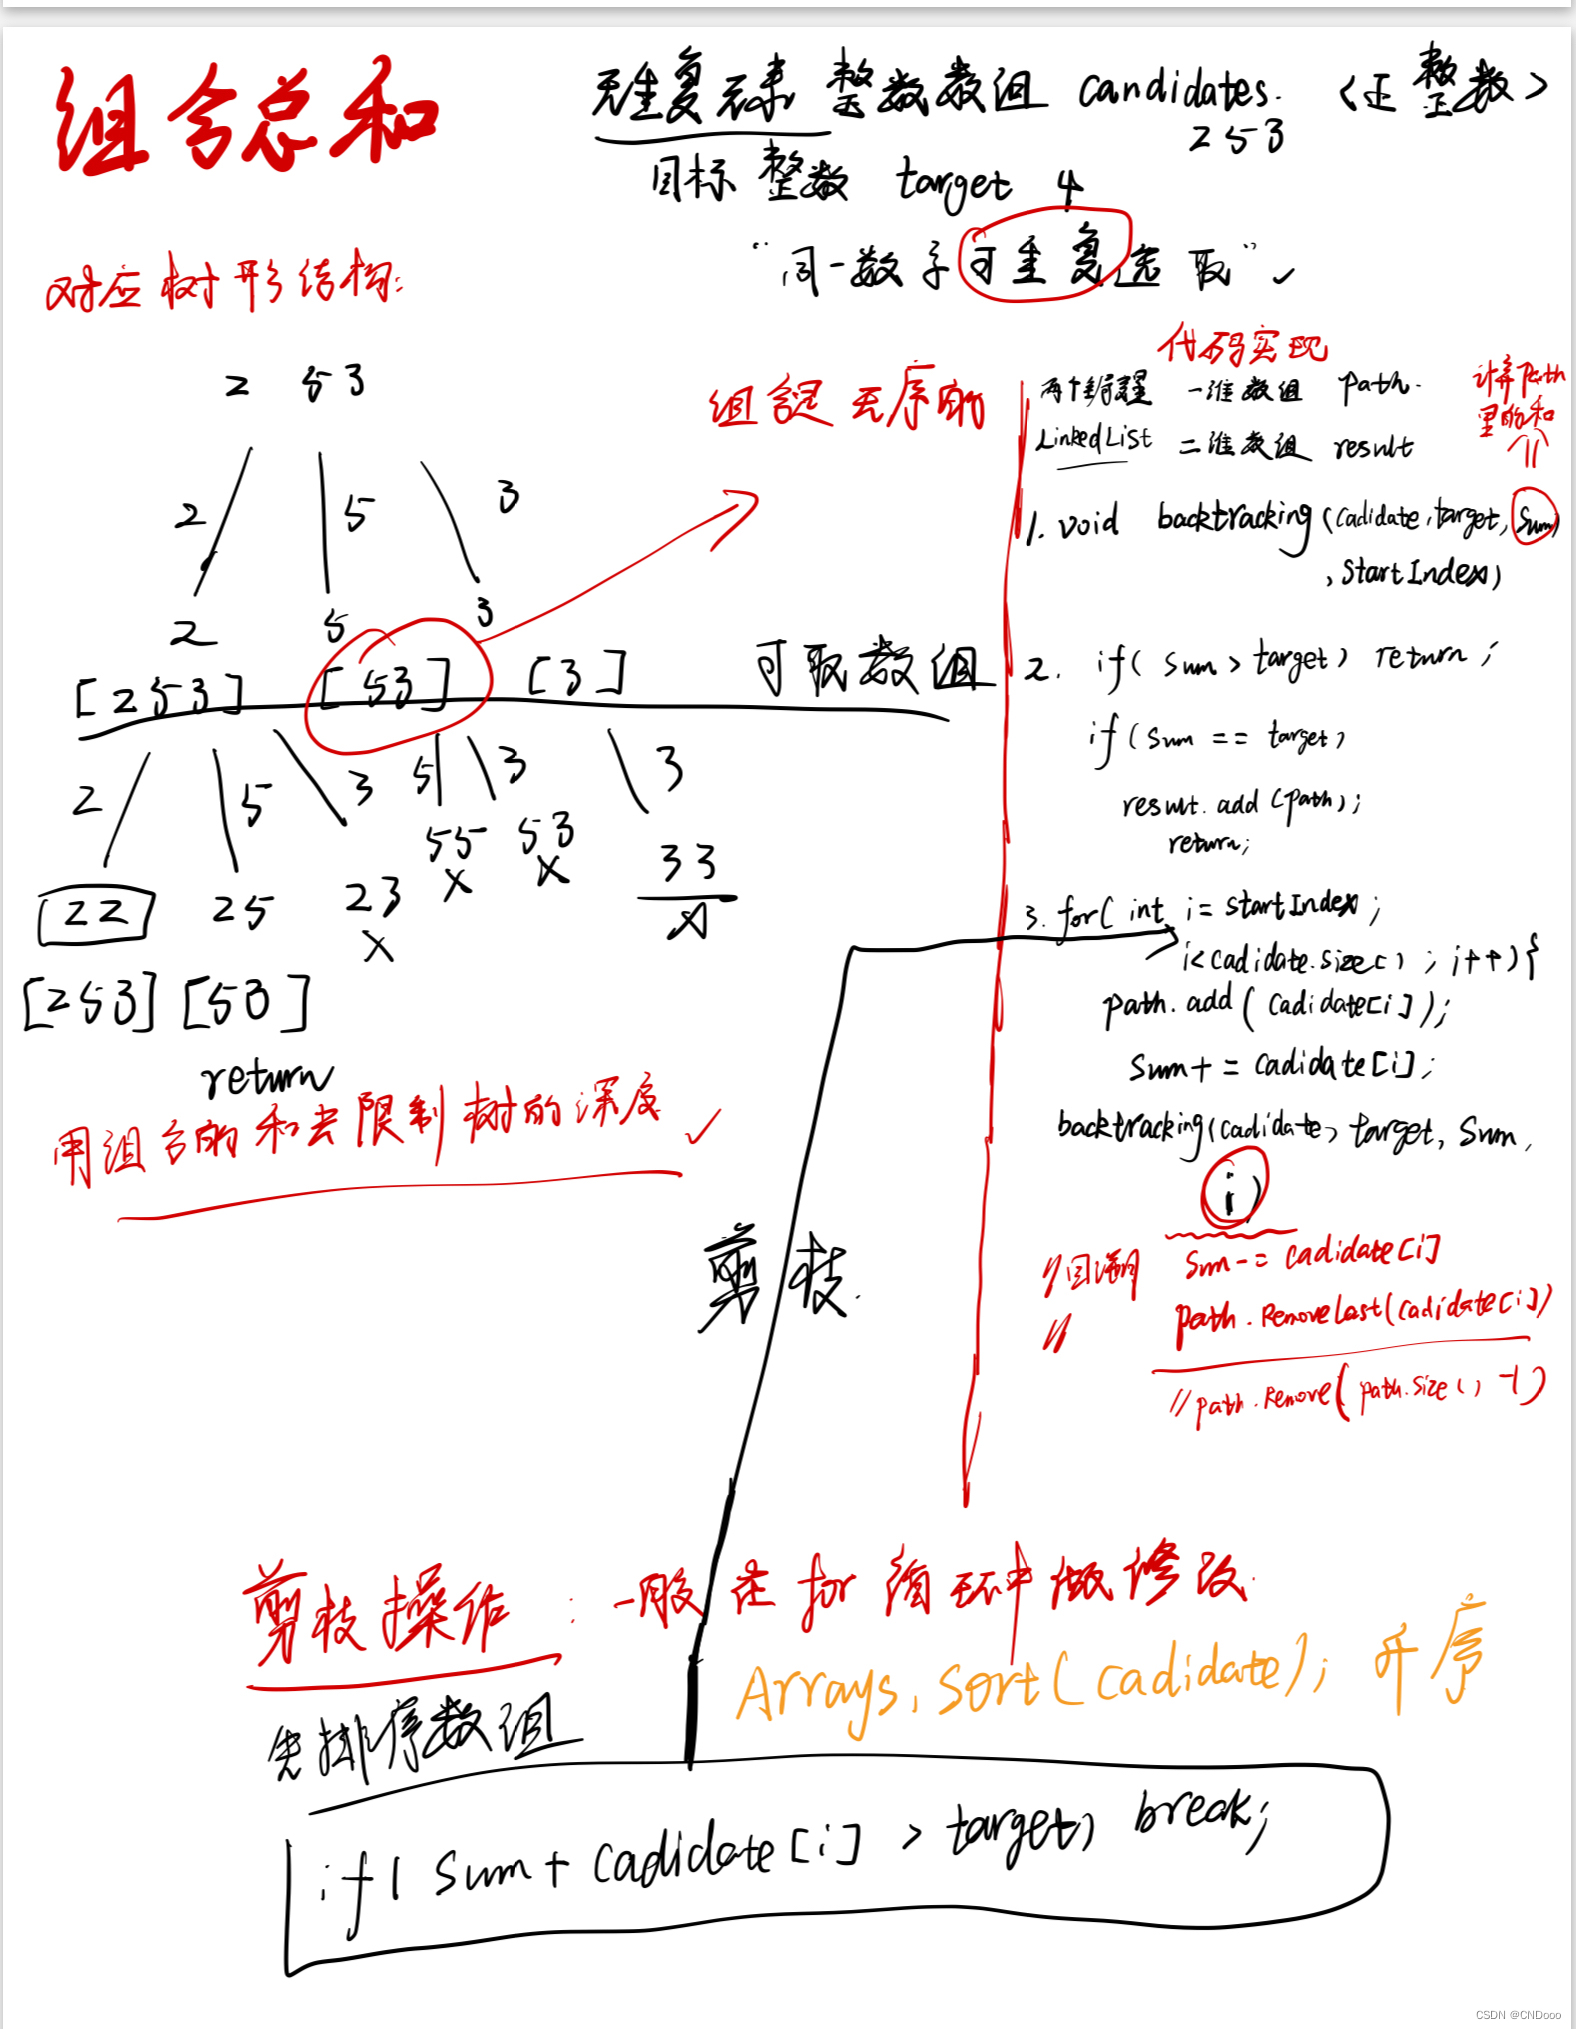 组合总和
无重复元素 整数数组 candidates. <正整数>
2 5 3
目标整数 target 4
"同一数字可重复选取" ✓
对应树形结构:
2 5 3
2 5 3
2 5 3
[2 5 3] [5 3] [3] 可取数组
2 5 3 5 3 3
55 53 33
x x x
22 25 23
x
[2 5 3] [5 3]
return
用组合的和去限制树的深度 ✓
组合是无序的
代码实现
两个全局变量 一维数组 path.
LinkedList 二维数组 result
计算Path
里的和
1. void backtracking(cadidate, target, sum)
, startIndex)
2. if( sum > target) return ;
if( sum == target)
result.add(path);
return;
3. for( int i = startIndex ;
i<cadidate.size() ; i++){
path.add( cadidate[i]);
sum+ = cadidate[i];
backtracking(cadidate, target, sum,
i)
//回溯 sum-= cadidate[i]
// path.RemoveLast(cadidate[i])
//path.Remove(path.size() -1)
剪枝.
剪枝操作: 一般在for循环中做修改.
Arrays.sort(cadidate); 升序
先排序数组
if( sum+cadidate[i] > target) break;
CSDN @CNDooo